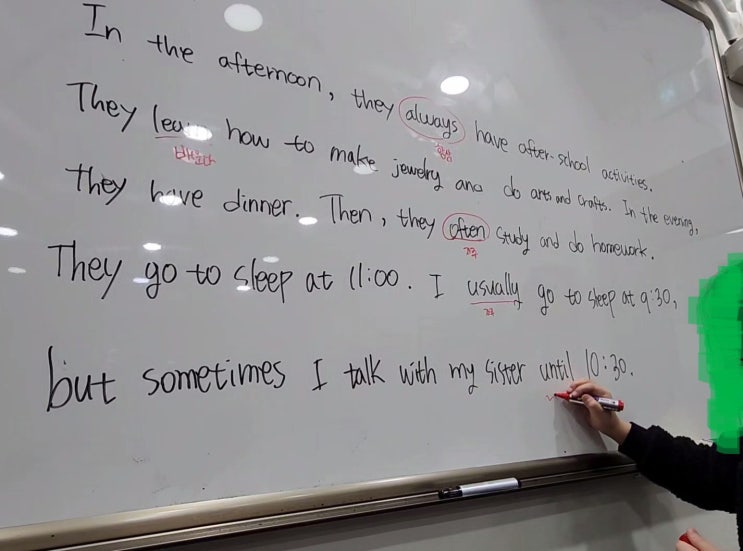 In the afternoon, they always have after-school activities.
항상
They learn how to make jewelry and do arts and crafts. In the evening,
배운다
they have dinner. Then, they often study and do homework.
자주
They go to sleep at 11:00. I usually go to sleep at 9:30,
자주
but sometimes I talk with my sister until 10:30.